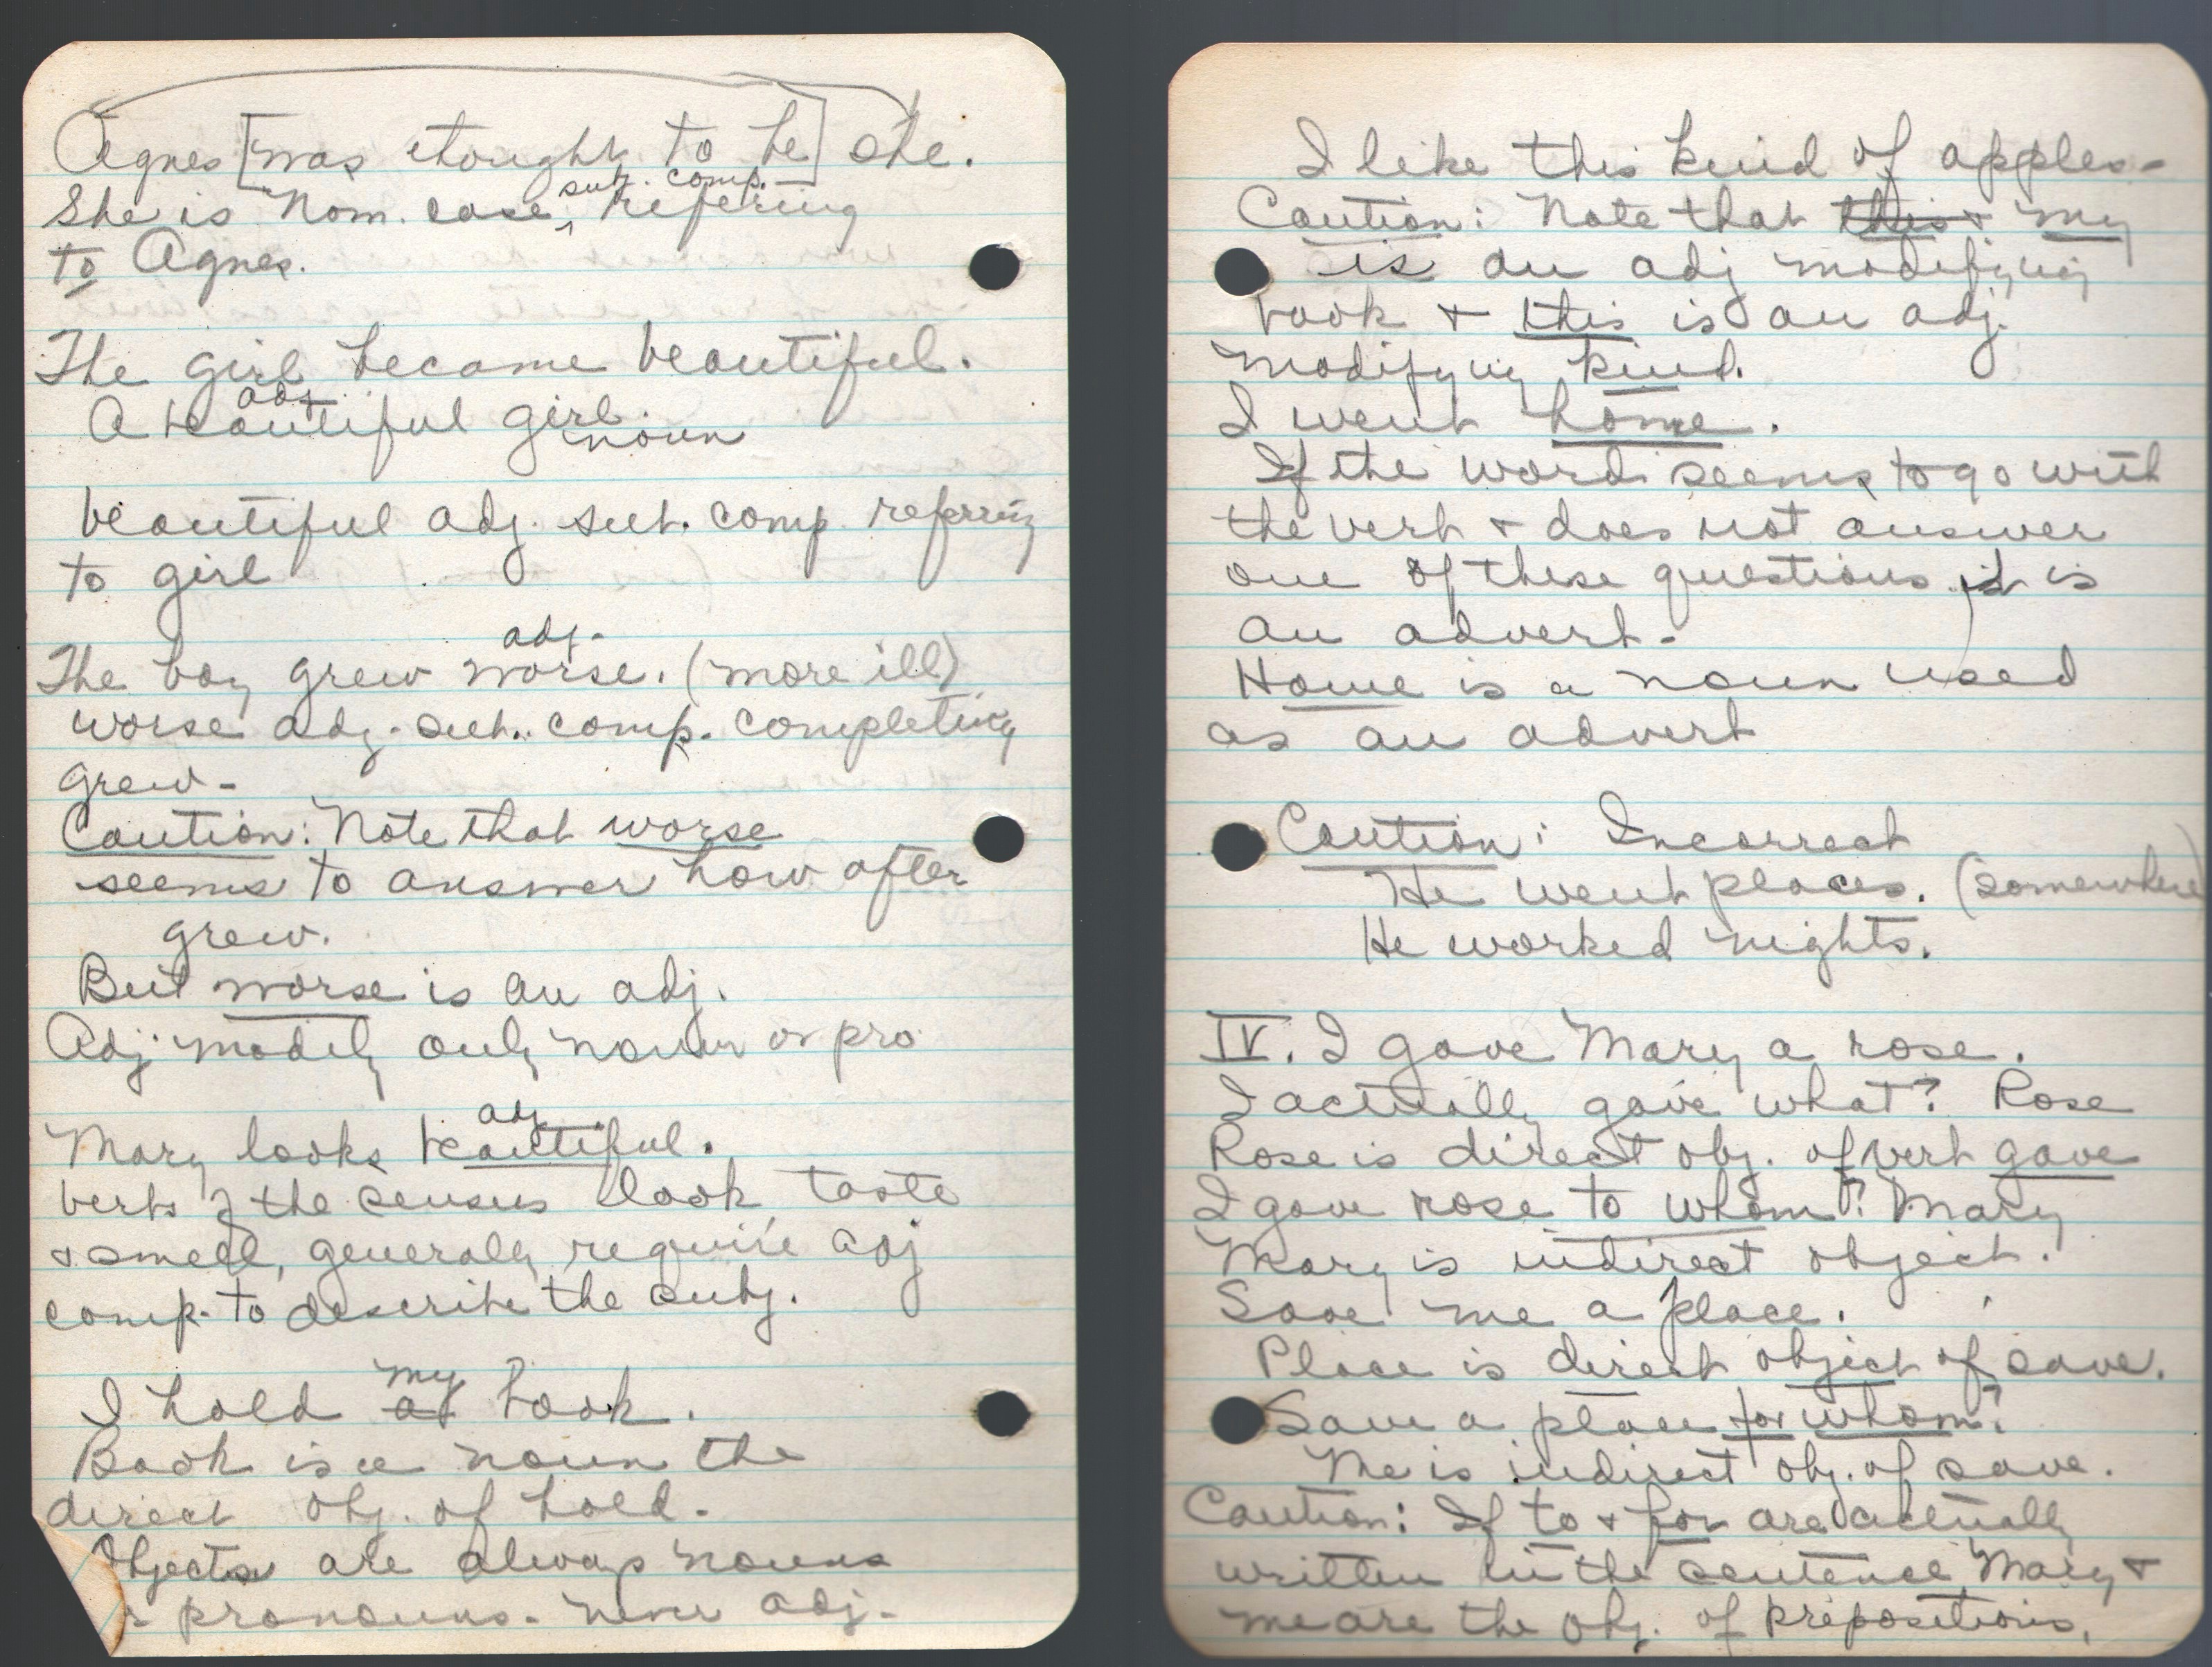 Agnes [was thought to be] she.
She is Nom. case, sub. comp. refering
to Agnes.
The girl became beautiful.
adj.
A beautiful girl.
noun
beautiful adj. sub. comp referring
to girl
adj.
The boy grew worse. (more ill)
worse adj. sub. comp. completing
grew.
Caution: Note that worse
seems to answer how after
grew.
But worse is an adj.
Adj modify only noun or pro
adj
Mary looks beautiful.
verbs of the senses look taste
& smell, generally require adj
comp. to describe the subj.
my
I hold a book.
Book is a noun the
direct obj. of hold.
Objects are always nouns
r pronouns. never adj.
I like this kind of apples.
Caution: Note that this & my
is an adj modifying
book & this is an adj.
modifying kind.
I went home.
If the word seems to go with
the verb & does not answer
one of these questions it is
an adverb.
Home is a noun used
as an adverb
Caution: Incorrect
He went places. (somewhere)
He worked nights.
IV. I gave Mary a rose.
I actually gave what? Rose
Rose is direct obj. of verb gave
I gave rose to whom? Mary
Mary is indirect object.
Save me a place.
Place is direct object of save.
Save a place for whom?
Me is indirect obj. of save.
Caution: If to & for are actually
written in the sentence Mary &
me are the obj. of prepositions.